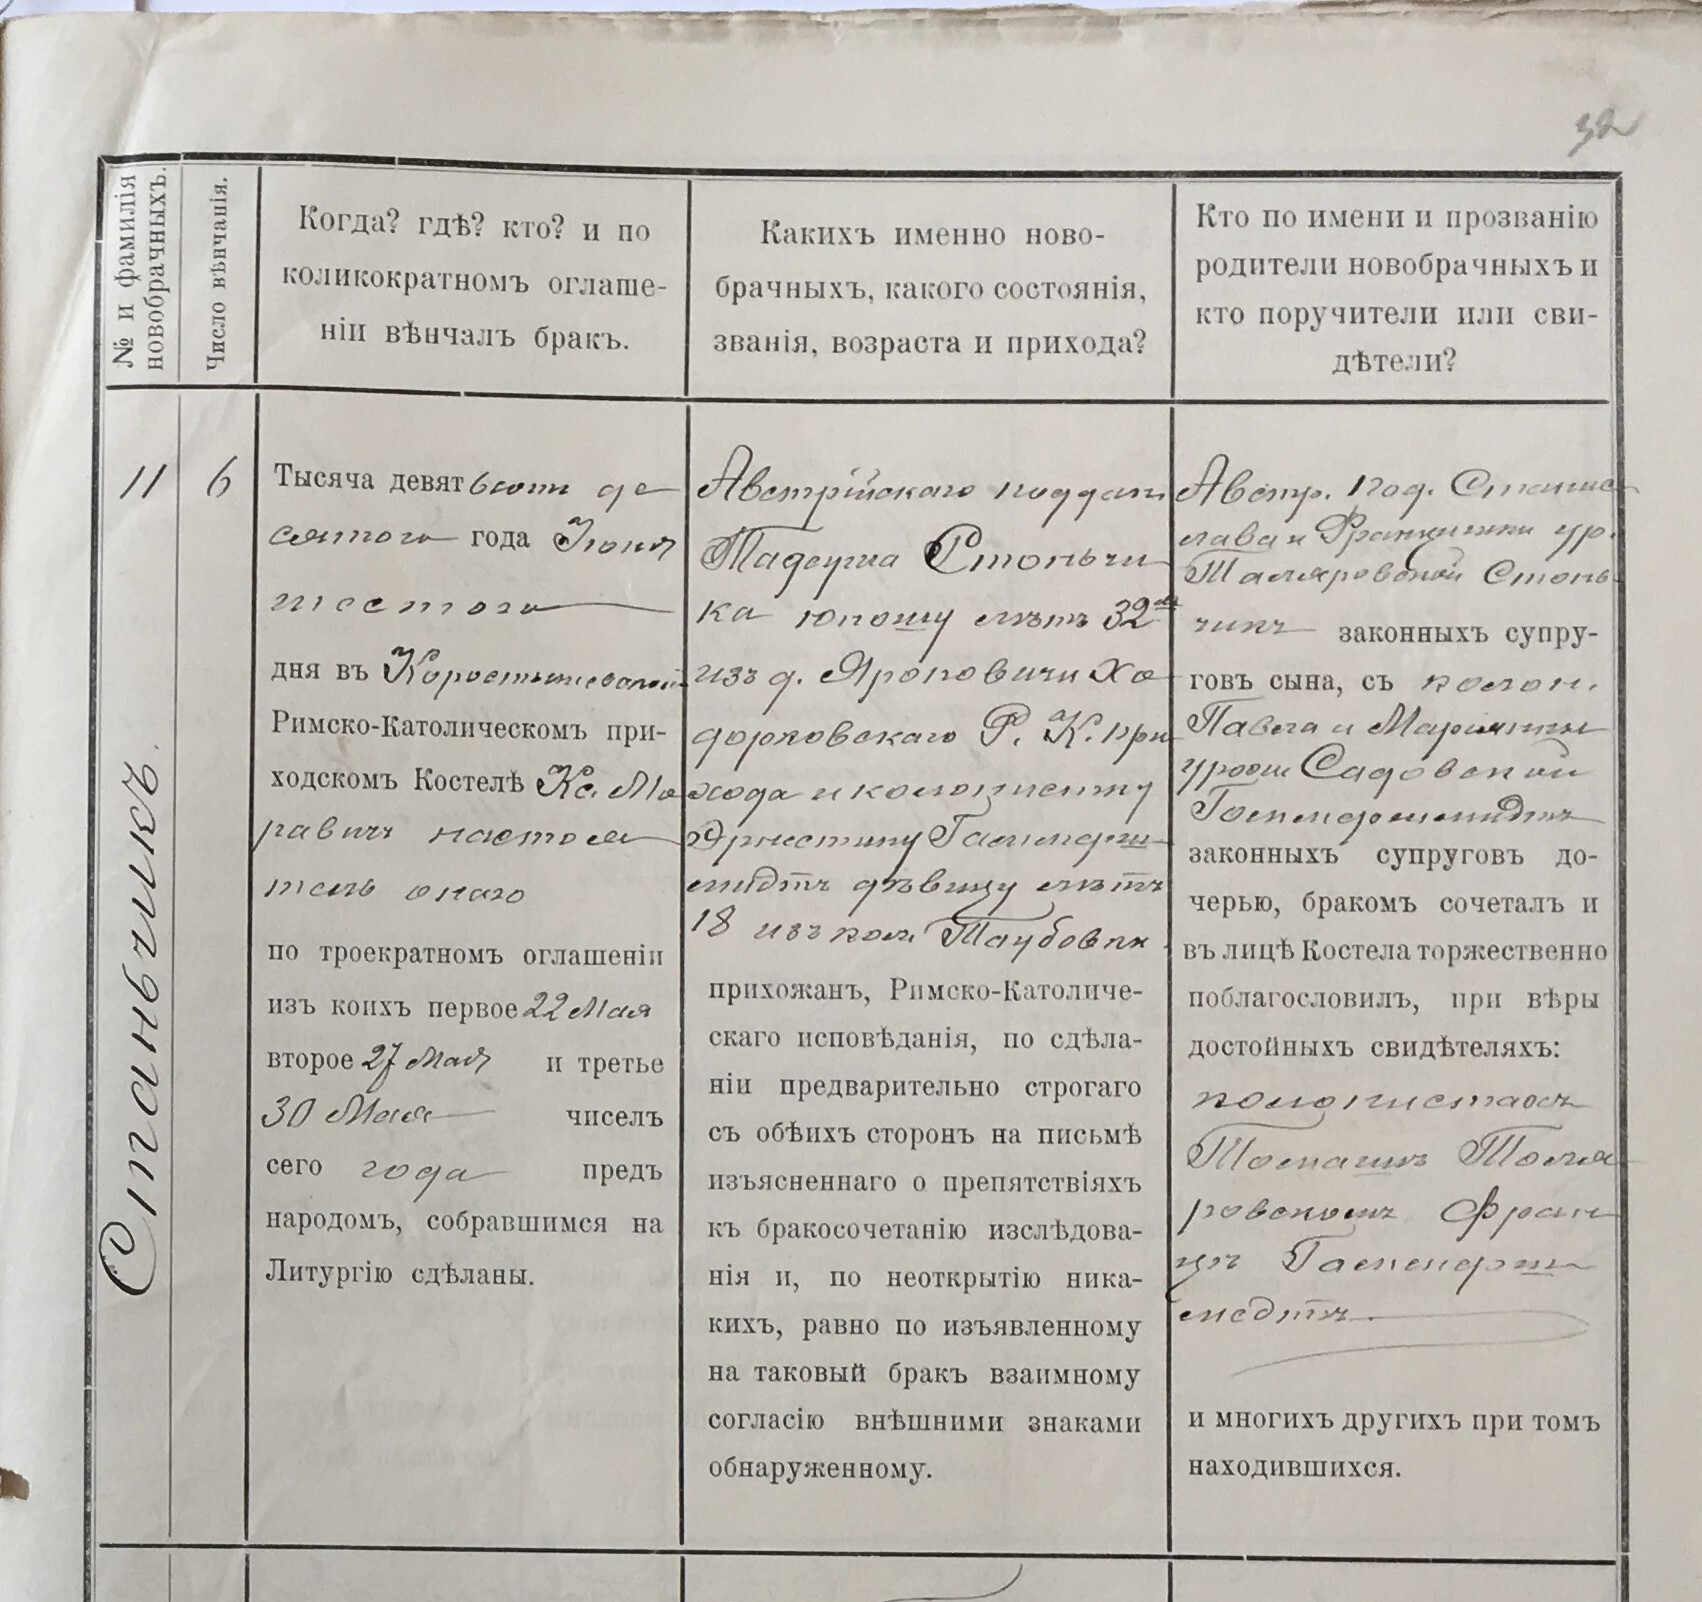 32
№ и фамилія
новобрачныхъ.
Число вѣнчанія.
Когда? гдѣ? кто? и по
коликократномъ оглаше-
ніи вѣнчалъ бракъ.
Какихъ именно ново-
брачныхъ, какого состоянія,
званія, возраста и прихода?
Кто по имени и прозванію
родители новобрачныхъ и
кто поручители или сви-
дѣтели?
11
Станьчикъ.
6
Тысяча девятьсотъ де
сятого года Іюня
шестого
дня въ Коростышевском
Римско-Католическомъ при-
ходскомъ Костелѣ Кс. Мо
равичъ настоя
тель онаго
по троекратномъ оглашеніи
изъ коихъ первое 22 Мая
второе 27 Мая и третье
30 Мая чиселъ
сего года предъ
народомъ, собравшимся на
Литургію сдѣланы.
Австрійскаго поддан.
Тадеуша Станьчи
ка юношу лѣтъ 32
изъ д. Яроповичи Хо
дорковскаго Р. К. при
хода и колонистку
Эрнестину Гаммерш
мидтъ дѣвицу лѣтъ
18 изъ кол. Таубовки
прихожанъ, Римско-Католиче-
скаго исповѣданія, по сдѣла-
ніи предварительно строгаго
съ обѣихъ сторонъ на письмѣ
изъясненнаго о препятствіяхъ
къ бракосочетанію изслѣдова-
нія и, по неоткрытію ника-
кихъ, равно по изъявленному
на таковый бракъ взаимному
согласію внѣшними знаками
обнаруженному.
Австр. под. Станис
лава и Францишки ур.
Талляровской Стань
чикъ законныхъ супру-
говъ сына, съ колон.
Павла и Маріянны
урож Садовской
Гаммершмидтъ
законныхъ супруговъ до-
черью, бракомъ сочеталъ и
въ лицѣ Костела торжественно
поблагословилъ, при вѣры
достойныхъ свидѣтеляхъ:
колонистахъ
Томашъ Толля
ровскомъ Фран
цъ Гаммерш
мидтъ
и многихъ другихъ при томъ
находившихся.